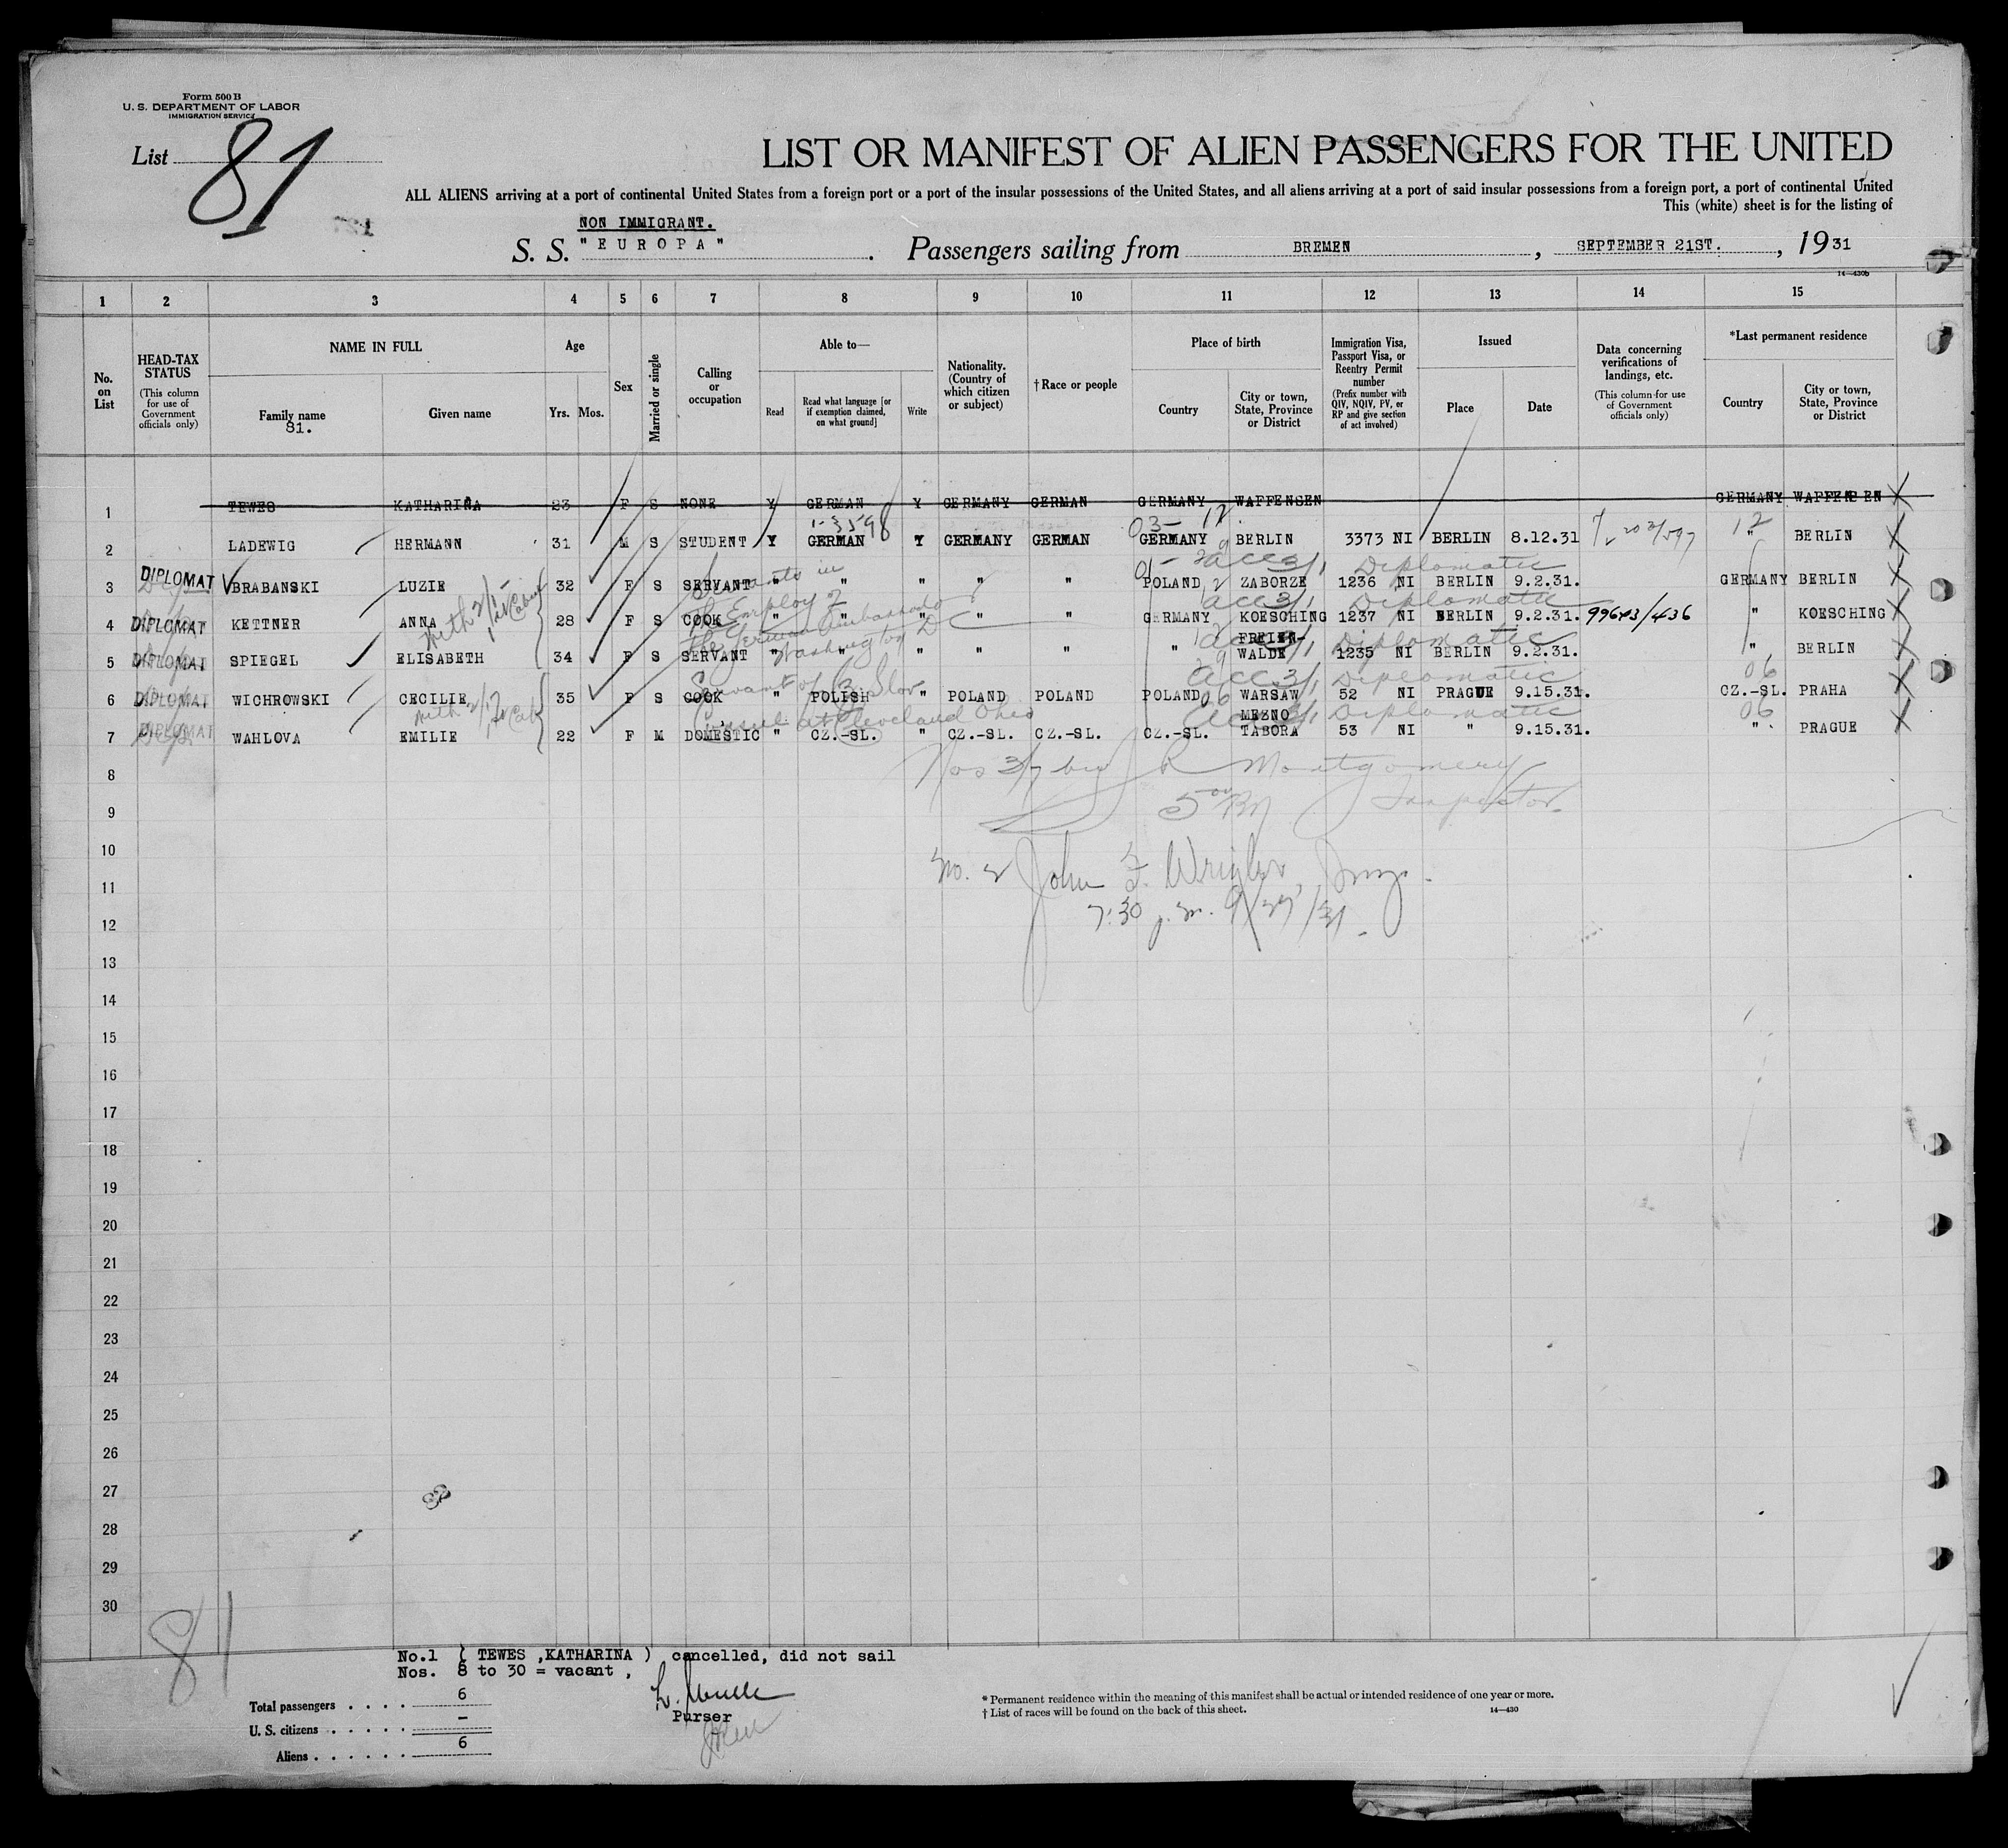 Form 500 B
U. S. DEPARTMENT OF LABOR
IMMIGRATION SERVICE
List 81
LIST OR MANIFEST OF ALIEN PASSENGERS FOR THE UNITED
ALL ALIENS arriving at a port of continental United States from a foreign port or a port of the insular possessions of the United States, and all aliens arriving at a port of said insular possessions from a foreign port, a port of continental United
This (white) sheet is for the listing of
NON IMMIGRANT.
S. S. "EUROPA". Passengers sailing from BREMEN, SEPTEMBER 21ST., 1931
14—430b
1 2 3 4 5 6 7 8 9 10 11 12 13 14 15
No. on List
HEAD-TAX STATUS (This column for use of Government officials only)
NAME IN FULL
Family name
81.
Given name
Age
Yrs. Mos.
Sex
Married or single
Calling or occupation
Able to—
Read
Read what language [or if exemption claimed, on what ground]
Write
Nationality. (Country of which citizen or subject)
† Race or people
Place of birth
Country
City or town, State, Province or District
Immigration Visa, Passport Visa, or Reentry Permit number (Prefix number with QIV, NQIV, PV, or RP and give section of act involved)
Issued
Place
Date
Data concerning verifications of landings, etc. (This column for use of Government officials only)
*Last permanent residence
Country
City or town, State, Province or District
1 TEWES KATHARINA 23 F S NONE Y GERMAN Y GERMANY GERMAN GERMANY WAFFENSEN GERMANY WAFFENSEN
2 LADEWIG HERMANN 31 M S STUDENT Y GERMAN Y GERMANY GERMAN GERMANY BERLIN 3373 NI BERLIN 8.12.31 " BERLIN
Diplomatic
3 DIPLOMAT BRABANSKI LUZIE 32 F S SERVANT " " " " " POLAND ZABORZE 1236 NI BERLIN 9.2.31. GERMANY BERLIN
Diplomatic
4 DIPLOMAT KETTNER ANNA 28 F S COOK " " " " " GERMANY KOESCHING 1237 NI BERLIN 9.2.31. 99643/436 " KOESCHING
Diplomatic
5 DIPLOMAT SPIEGEL ELISABETH 34 F S SERVANT " " " " " " FREIEN-WALDE 1235 NI BERLIN 9.2.31. " BERLIN
Servants in the Employ of the German Ambassador Washington D C
Diplomatic
6 DIPLOMAT WICHROWSKI CECILIE 35 F S COOK " POLISH " POLAND POLAND POLAND WARSAW 52 NI PRAGUE 9.15.31. CZ.-SL. PRAHA
Diplomatic
7 DIPLOMAT WAHLOVA EMILIE 22 F M DOMESTIC " CZ.-SL. " CZ.-SL. CZ.-SL. CZ.-SL. MEZNO TABORA 53 NI " 9.15.31. " PRAGUE
Consul at Cleveland Ohio
8 Nos 3/7 R Montgomery
9 Inspector
10
11 No. 2 John F. Insp.
12 7:30 p.m.
13
14
15
16
17
18
19
20
21
22
23
24
25
26
27
28
29
30
81
No.1 ( TEWES ,KATHARINA ) cancelled, did not sail
Nos. 8 to 30 = vacant ,
Total passengers . . . . 6
U. S. citizens . . . . . –
Aliens . . . . . . 6
Purser
* Permanent residence within the meaning of this manifest shall be actual or intended residence of one year or more.
† List of races will be found on the back of this sheet.
14—430